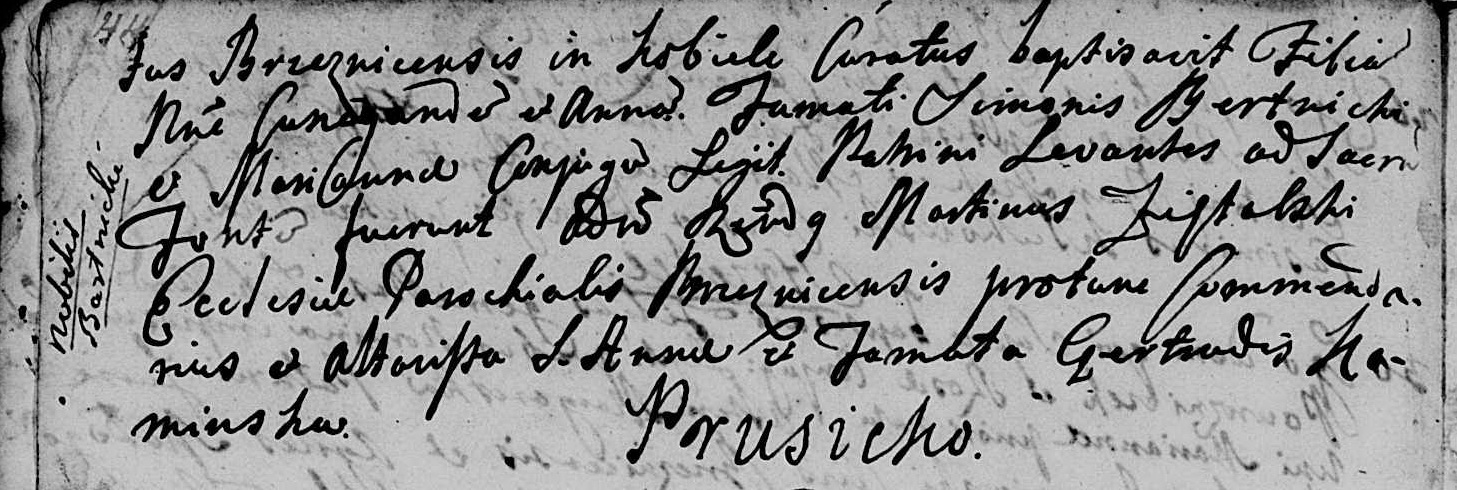 Jus Brzeznicensis in Kobiele Curatus baptisavit Filia
Nne Cunegande et Anna. Famati Simonis Bertnichi
et Marianne Conjugu Legit. Patrini Levantes ad Sacru
Fonte fuerunt Rndg Martinus Zigtalski
Ecclesiæ Parochialis Brzeznicensis protunc Commenda-
rius et Altarista S. Annæ Et Famata Gertrudis Ka-
minska.
Prusicko.
Nobilis
Bartnicki